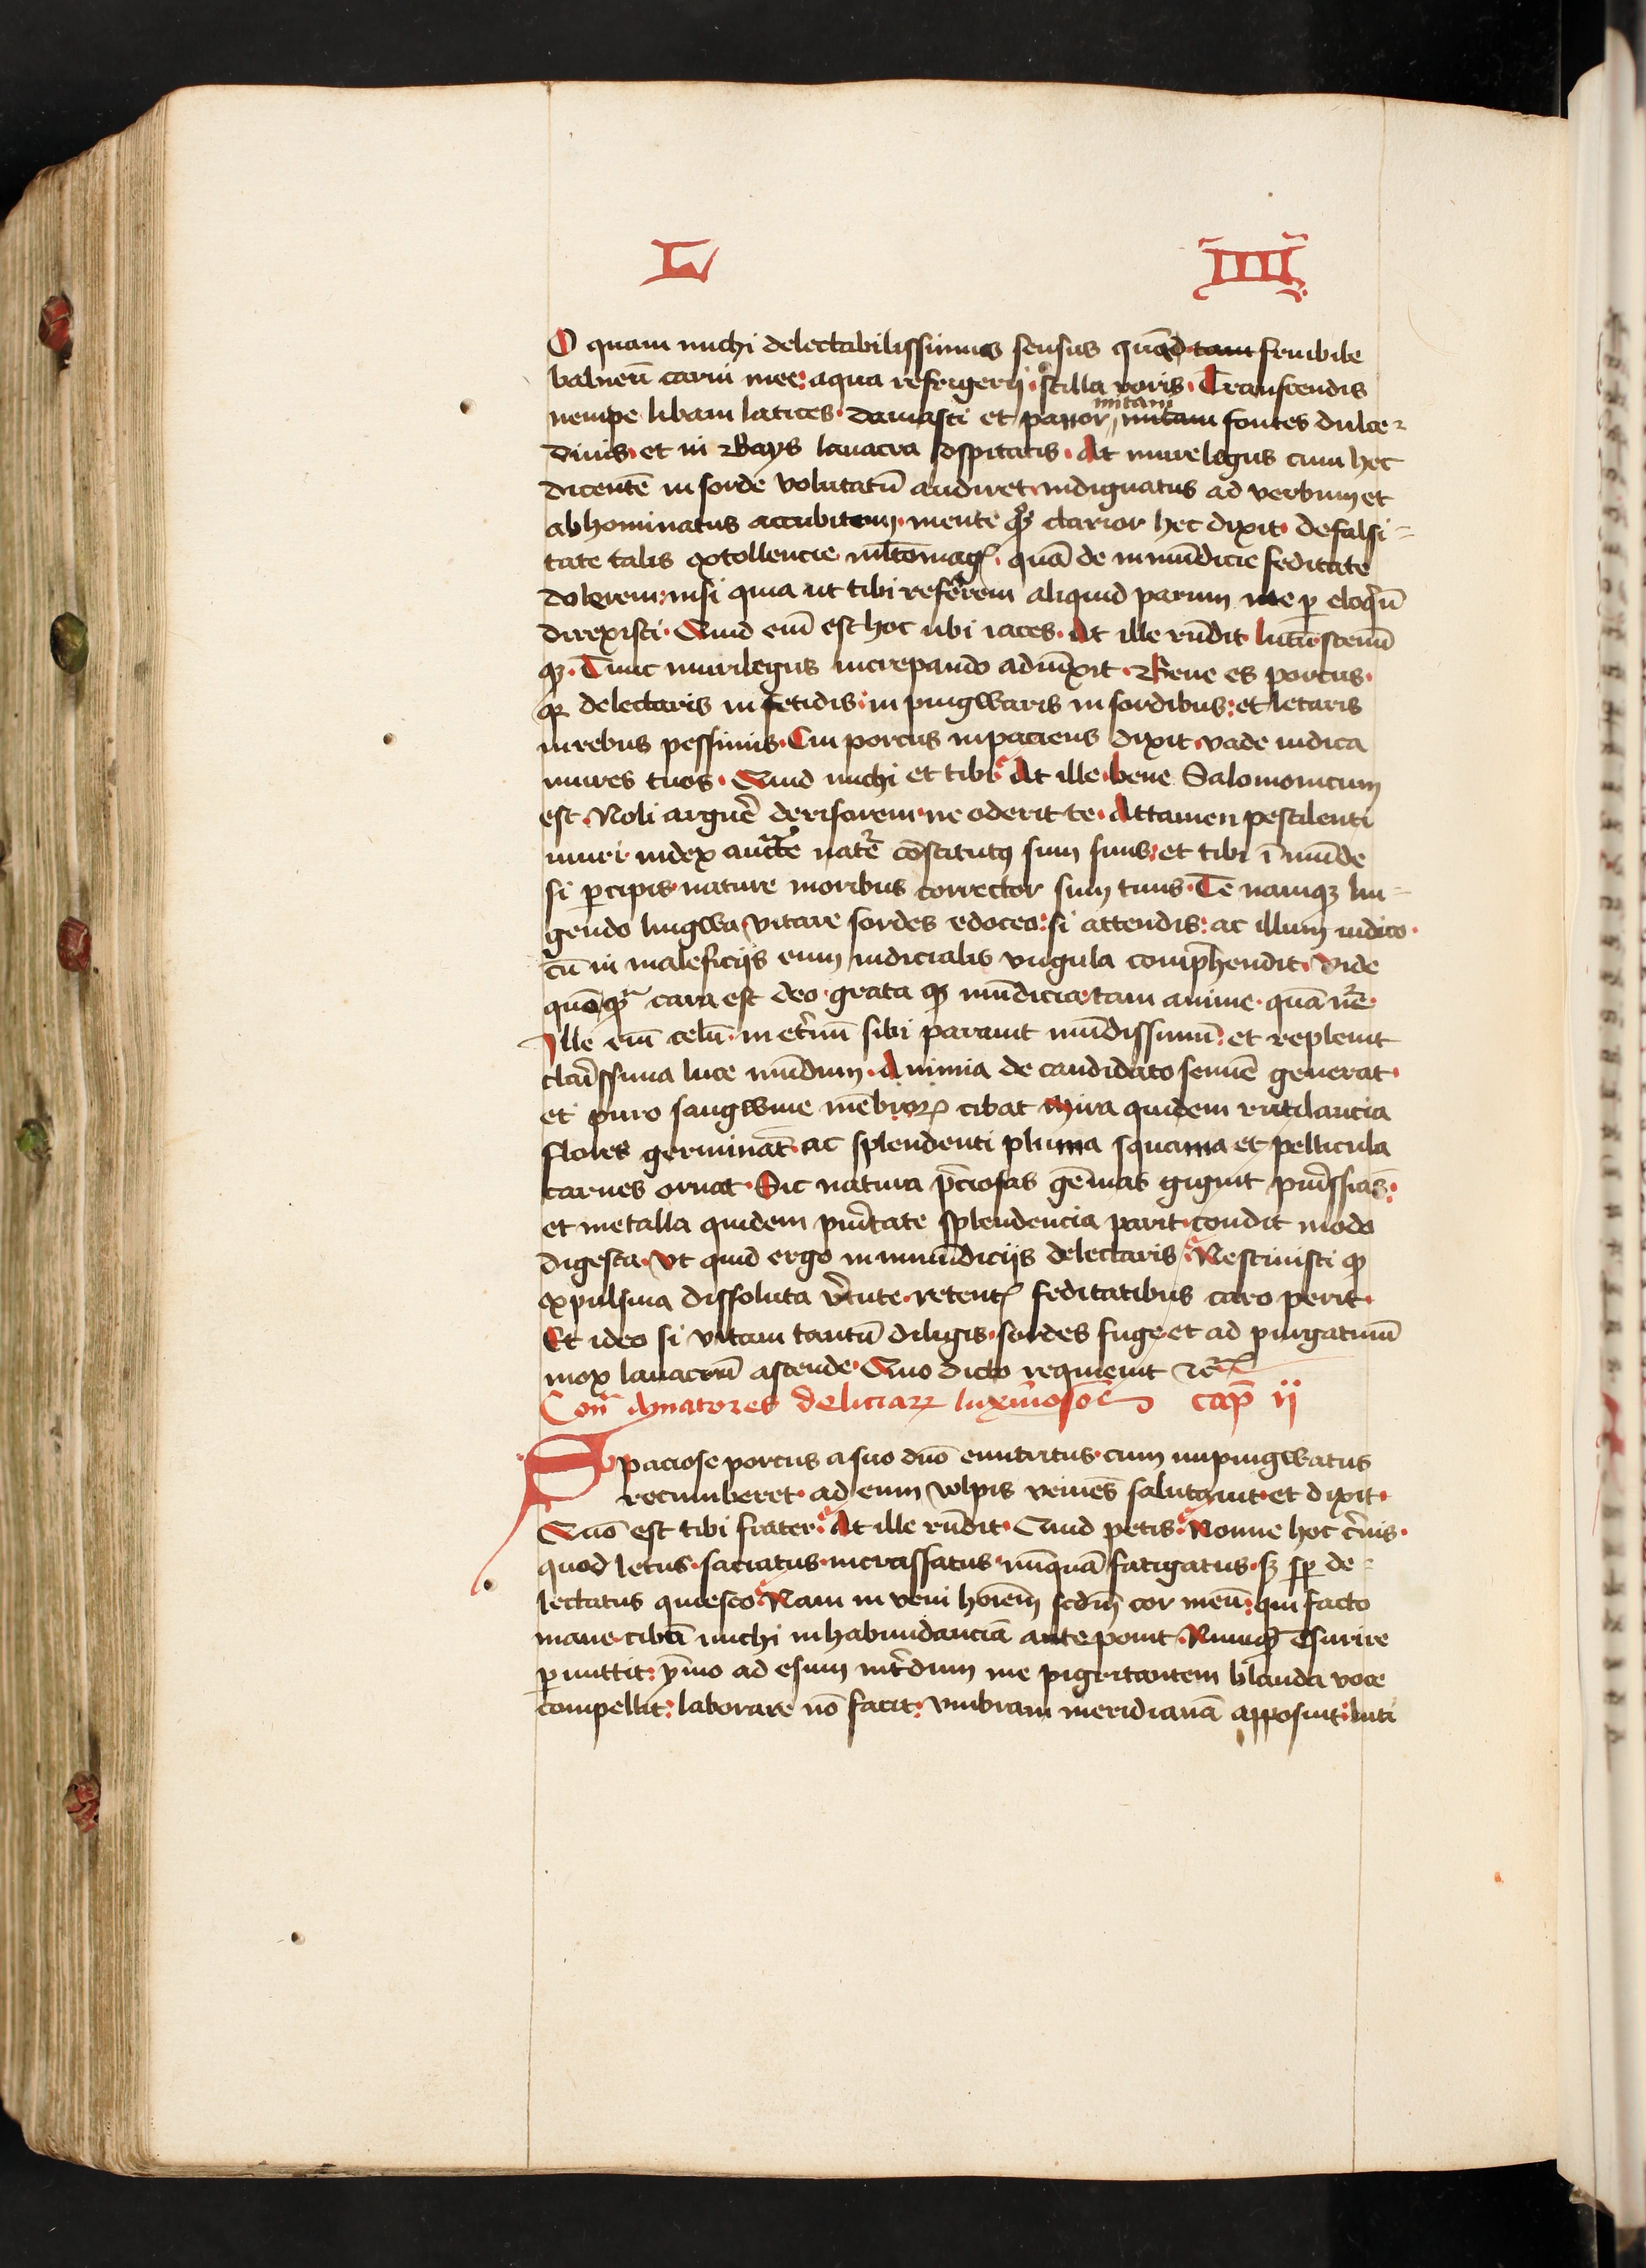 L IIII
O quam michi delectabilissimus sensus quod tam fruibile
balneū carni mee: aqua refrigerij. stilla roris. Transcendis
nempe libani latices. damasci et panor, mitam mitam fontes dulce-
dinis. et in Bays lauacra sospitatis. At murelegus cum hec
dicentē in sorde volutatū audiret. indignatus ad verbum et
abhominatus accubitum. mente qȝ clarior hec dixit. de falsi-
tate talis extollencie mltomagꝭ. quā de inmūdicie feditate
dolerem: nisi quia ut tibi referrem aliquid parum me ꝑ eloqiū
direxisti. Quid eni̅ est hoc ubi iaces. At ille rn̄dit lutū cenū
qȝ. Tunc murilegus increpando adiūxit. Bene es porcus.
qꝛ delectaris in fetidis: inpingwaris in sordibus: et letaris
in rebus pessimis. Cui porcus inpaciens dixit vade iudica
mures tuos. Quid michi et tibi At ille bene Salomonicum
est. Noli arguē̓ derisorem. ne oderit te. Attamen pestilenti
muri iudex auctē natē cōstitutꝰ sum suus: et tibi īmūde
si ꝑcipis. nature moribus corrector sum tuus. Te namqȝ lin-
gendo lingwa, vitare sordes edoceo: si attendis: ac illum iudico.
cū in maleficijs eum iudicialis vngula comp̄hendit. Vide
quō cara est deo. grata qȝ mūdicia, tam anime. quā nr̄e.
Ille eni̅ celū. in etn̄ū sibi parauit mūdissimū: et repleuit
clarissima luce mūdum. Animia de candidato semīe generat.
et puro sangwine mēbroꝝ cibat Mira quidem rutilancia
flores germināt. ac splendenti pluma squama et pellicula
carnes ornat. Sic natura p̄ciosas gēmas gignit purissias:
et metalla quidem puritate splendencia parit. condit modo
digesta. Vt quid ergo in inmūdicijs delectaris. Nesciuisti qȝ
expulsiua dissoluta v̓tute. retentꝭ feditatibus caro perit.
Et ideo si vitam tantū diligis. sordes fuge. et ad purgatiuū
mox lauacrū ascende. Quo dicto requieuit ⁊c̄
Con̄ Amatores deliciaꝝ luxuriosoꝝ cap̄ ij
Spaciose porcus a suo dn̄o enutritus. cum inpingwatus
recumberet. ad eum wlpis veniēs salutauit. et dixit.
Quō est tibi frater. At ille rn̄dit. Quid petis. Nonne hoc c̓nis.
quod letus. saciatus. incrassatus. nūquā fatigatus. sȝ sp̄ de-
lectatus quiesco. Nam inveni hoīem scdm̄ cor meū: qui facto
mane. cibū michi in habundanciā ante ponit. Nunqȝ esurire
ꝑmittit: ymo ad esum int̓dum me pigritantem blanda voce
compellit: laborare nō facit: vmbram meridianā apposuit: luti